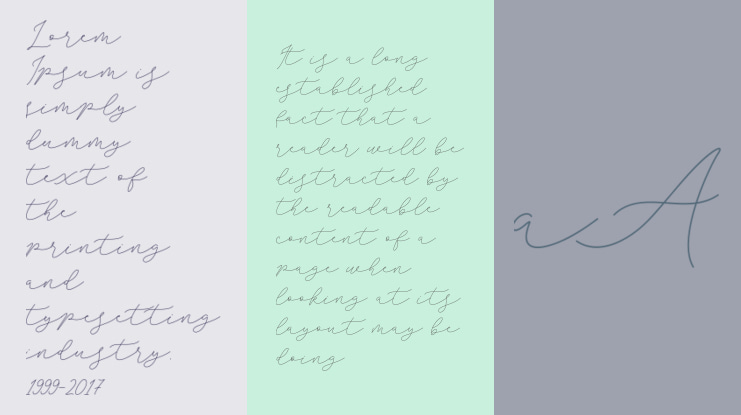 Lorem
Ipsum is
simply
dummy
text of
the
printing
and
typesetting
industry.
1999-2017
It is a long
established
fact that a
reader will be
distracted by
the readable
content of a
page when
looking at its
layout may be
doing
aA